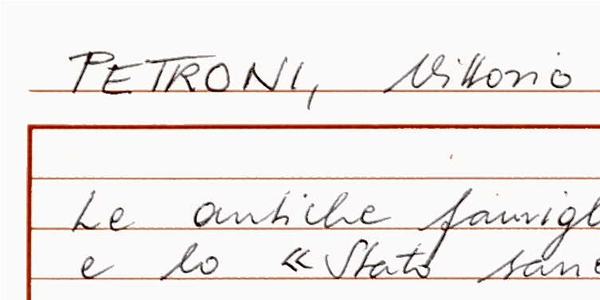 PETRONI, Vittorio
Le antiche famigl
e lo «Stato sane